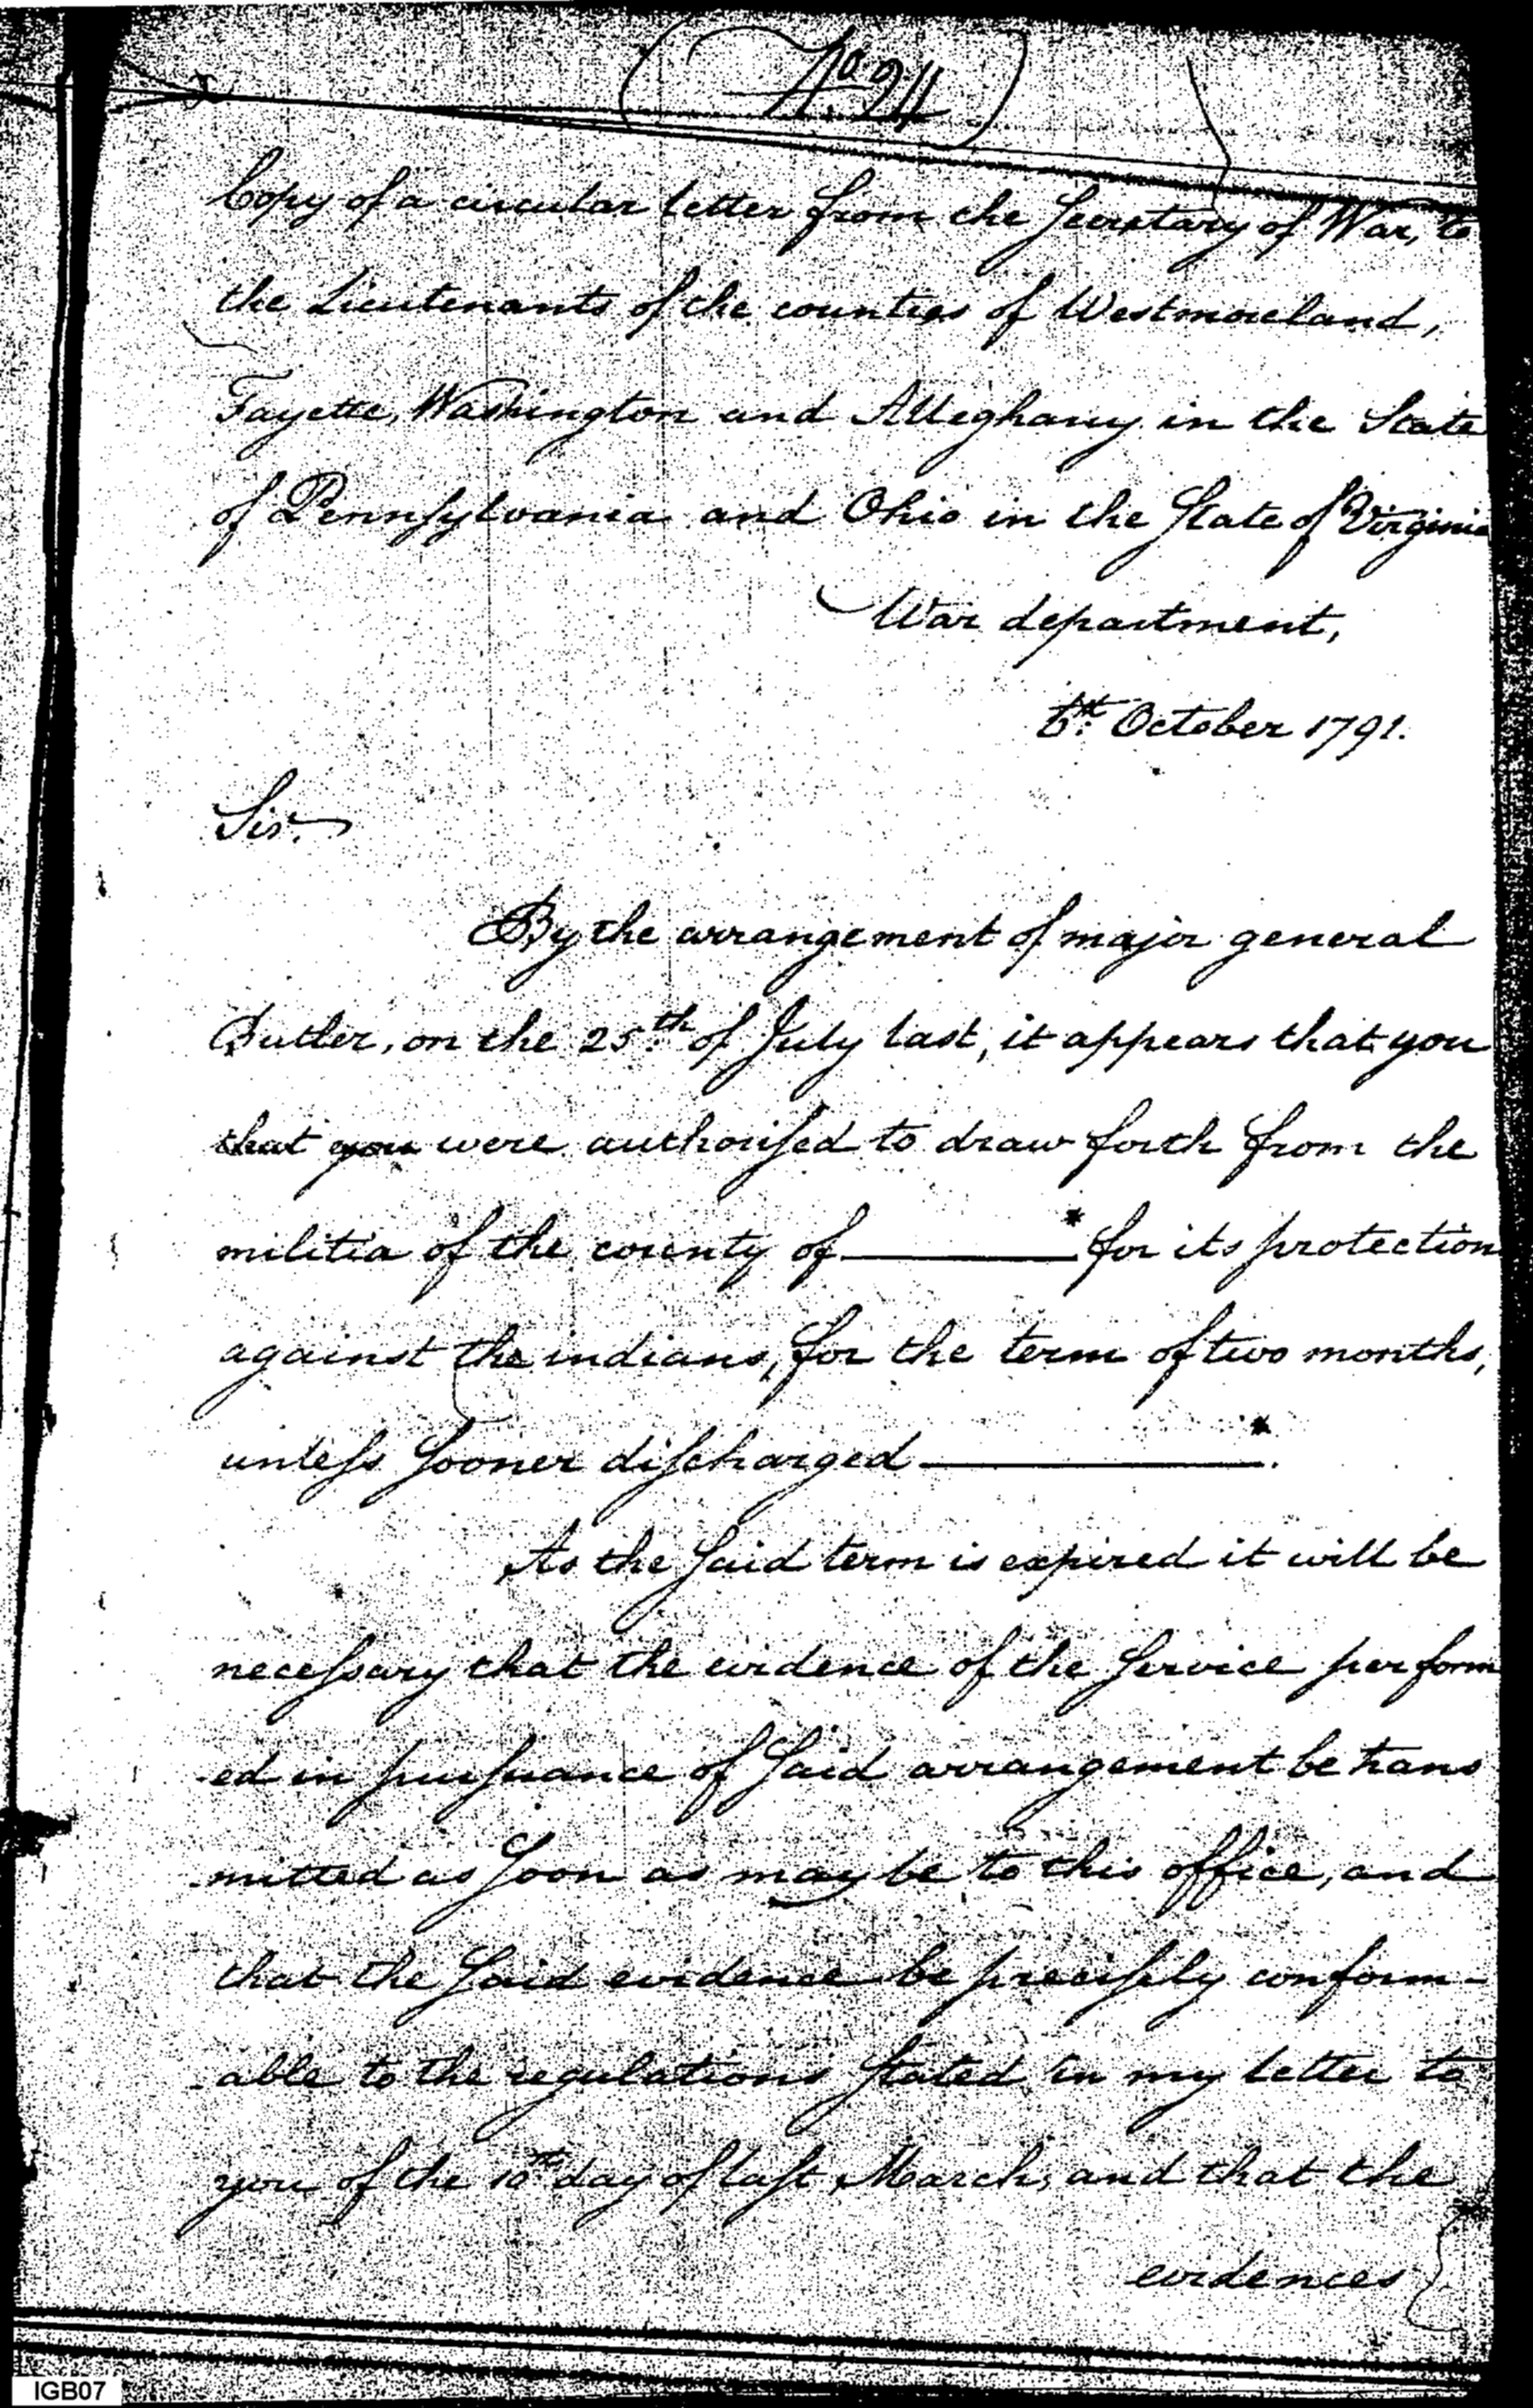 (No. 24)
Copy of a circular letter from the Secretary of War, to
the Lieutenants of the counties of Westmoreland,
Fayette, Washington and Alleghany in the State
of Pennsylvania and Ohio in the State of Virginia
War department,
6th. October 1791.
Sir.
By the arrangement of major general
Butler, on the 25th. of July last, it appears that you
that you were authorised to draw forth from the
militia of the county of ______* for its protection
against the indians, for the term of two months,
unless sooner discharged ______*.
As the said term is expired it will be
necessary that the evidence of the service perform
-ed in pursuance of said arrangement be trans
mitted as soon as may be to this office, and
that the said evidence be precisely conform-
able to the regulations stated in my letter to
you of the 10th day of last March, and that the
evidences
IGB07